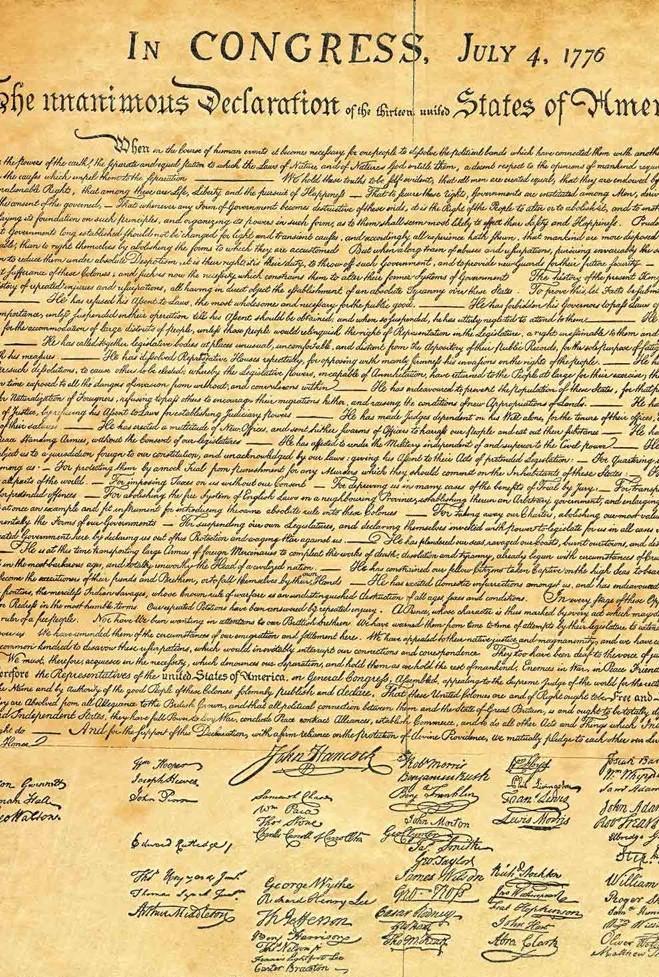 IN CONGRESS, JULY 4, 1776
The unanimous Declaration of the thirteen united States of Amer
When in the Course of human events it becomes necessary for one people to dissolve the political bands which have connected them with anothe
the powers of the earth, the separate and equal station to which the Laws of Nature and of Nature's God entitle them, a decent respect to the opinions of mankind requi
the causes which impel them to the separation — We hold these truths to be self-evident, that all men are created equal, that they are endowed by
unalienable Rights, that among these are Life, Liberty and the pursuit of Happiness — That to secure these rights, Governments are instituted among Men, deriv
the consent of the governed, — That whenever any Form of Government becomes destructive of these ends, it is the Right of the People to alter or to abolish it, and to inst
laying its foundation on such principles, and organizing its powers in such form, as to them shall seem most likely to effect their Safety and Happiness. Prude
t Governments long established should not be changed for light and transient causes; and accordingly all experience hath shewn, that mankind are more disposed
able, than to right themselves by abolishing the forms to which they are accustomed. But when a long train of abuses and usurpations, pursuing invariably the s
n to reduce them under absolute Despotism, it is their right, it is their duty, to throw off such Government, and to provide new Guards for their future security. —
t sufferance of these Colonies; and such is now the necessity which constrains them to alter their former Systems of Government The history of the present King
story of repeated injuries and usurpations, all having in direct object the establishment of an absolute Tyranny over these States To prove this, let Facts be submi
— He has refused his Assent to Laws, the most wholesome and necessary for the public good. — He has forbidden his Governors to pass Laws of
mportance, unless suspended in their operation till his Assent should be obtained; and when so suspended, he has utterly neglected to attend to them — He
for the accommodation of large districts of people, unless those people would relinquish the right of Representation in the Legislature, a right inestimable to them and
— He has called together legislative bodies at places unusual, uncomfortable, and distant from the depository of their public Records, for the sole purpose of fatig
h his measures. — He has dissolved Representative Houses repeatedly, for opposing with manly firmness his invasions on the rights of the people. — He ha
such dissolutions, to cause others to be elected; whereby the Legislative powers, incapable of Annihilation, have returned to the People at large for their exercise; th
time exposed to all the dangers of invasion from without, and convulsions within — He has endeavoured to prevent the population of these States; for that p
r Naturalization of Foreigners; refusing to pass others to encourage their migrations hither, and raising the conditions of new Appropriations of Lands. — He ha
of Justice, by refusing his Assent to Laws for establishing Judiciary powers — He has made Judges dependent on his Will alone, for the tenure of their offices,
of their salaries — He has erected a multitude of New Offices, and sent hither swarms of Officers to harrass our people and eat out their substance — He ha
eace Standing Armies, without the Consent of our legislatures — He has affected to render the Military independent of and superior to the Civil power — He h
bject us to a jurisdiction foreign to our constitution, and unacknowledged by our laws; giving his Assent to their Acts of pretended Legislation: — For Quartering
mong us: — For protecting them by a mock Trial from punishment for any Murders which they should commit on the Inhabitants of these States: — For
all parts of the world: — For imposing Taxes on us without our Consent: — For depriving us in many cases of the benefits of Trial by Jury: — For transpo
for pretended offences — For abolishing the free System of English Laws in a neighbouring Province, establishing therein an Arbitrary government, and enlarging
at once an example and fit instrument for introducing the same absolute rule into these Colonies — For taking away our Charters, abolishing our most valua
mentally the Forms of our Governments — For suspending our own Legislatures, and declaring themselves invested with power to legislate for us in all cases w
cated Government here by declaring us out of his Protection and waging War against us. — He has plundered our seas, ravaged our Coasts, burnt our towns, and des
— He is at this time transporting large Armies of foreign Mercenaries to compleat the works of death, desolation and tyranny, already begun with circumstances of Cru
n the most barbarous ages, and totally unworthy the Head of a civilized nation. — He has constrained our fellow Citizens taken Captive on the high Seas to bear
become the executioners of their friends and Brethren, or to fall themselves by their Hands — He has excited domestic insurrections amongst us, and has endeavoured
frontiers, the merciless Indian Savages, whose known rule of warfare, is an undistinguished destruction of all ages, sexes and conditions. In every stage of these Opp
n Redress in the most humble terms: Our repeated Petitions have been answered by repeated injury. A Prince, whose character is thus marked by every act which may d
ruler of a free people. Nor have We been wanting in attentions to our Brittish brethren. We have warned them from time to time of attempts by their legislature to exten
over us We have reminded them of the circumstances of our emigration and settlement here. We have appealed to their native justice and magnanimity, and we have c
common kindred to disavow these usurpations, which would inevitably interrupt our connections and correspondence They too have been deaf to the voice of jus
We must, therefore, acquiesce in the necessity, which denounces our Separation, and hold them, as we hold the rest of mankind, Enemies in War, in Peace Friend
erefore the Representatives of the united States of America, in General Congress, Assembled, appealing to the Supreme Judge of the world for the rect
the Name, and by authority of the good People of these Colonies, solemnly publish and declare, That these United Colonies are, and of Right ought to be Free and
ey are Absolved from all Allegiance to the British Crown, and that all political connection between them and the State of Great Britain, is and ought to be totally di
nd Independent States, they have full Power to levy War, conclude Peace, contract Alliances, establish Commerce, and to do all other Acts and Things which Inde
ght do — And for the support of this Declaration, with a firm reliance on the protection of divine Providence, we mutually pledge to each other our
Honor
ton Gwinnett
man Hall
eo Walton.
Wm Hooper
Joseph Hewes
John Penn
Edward Rutledge
Thos Heyward Junr
Thomas Lynch Junr
Arthur Middleton
John Hancock
Samuel Chase
Wm Paca
Thos Stone
Charles Carroll of Carrollton
George Wythe
Richard Henry Lee
Th Jefferson
Benj Harrison
Thos Nelson jr
Francis Lightfoot Lee
Carter Braxton
Robt Morris
Benjamin Rush
Benj Franklin
John Morton
Geo Clymer
Jas Smith
Geo Taylor
James Wilson
Geo Ross
Caesar Rodney
Geo Read
Tho M:Kean
Wm Floyd
Phil Livingston
Frans Lewis
Lewis Morris
Richd Stockton
Jno Witherspoon
Fras Hopkinson
John Hart
Abra Clark
Josiah Bar
Wm Whipp
Saml Adam
John Adam
Robt Treat
Elbridge G
Step H
William
Roger She
Saml Hun
Wm Will
Oliver Wol
Matthew T